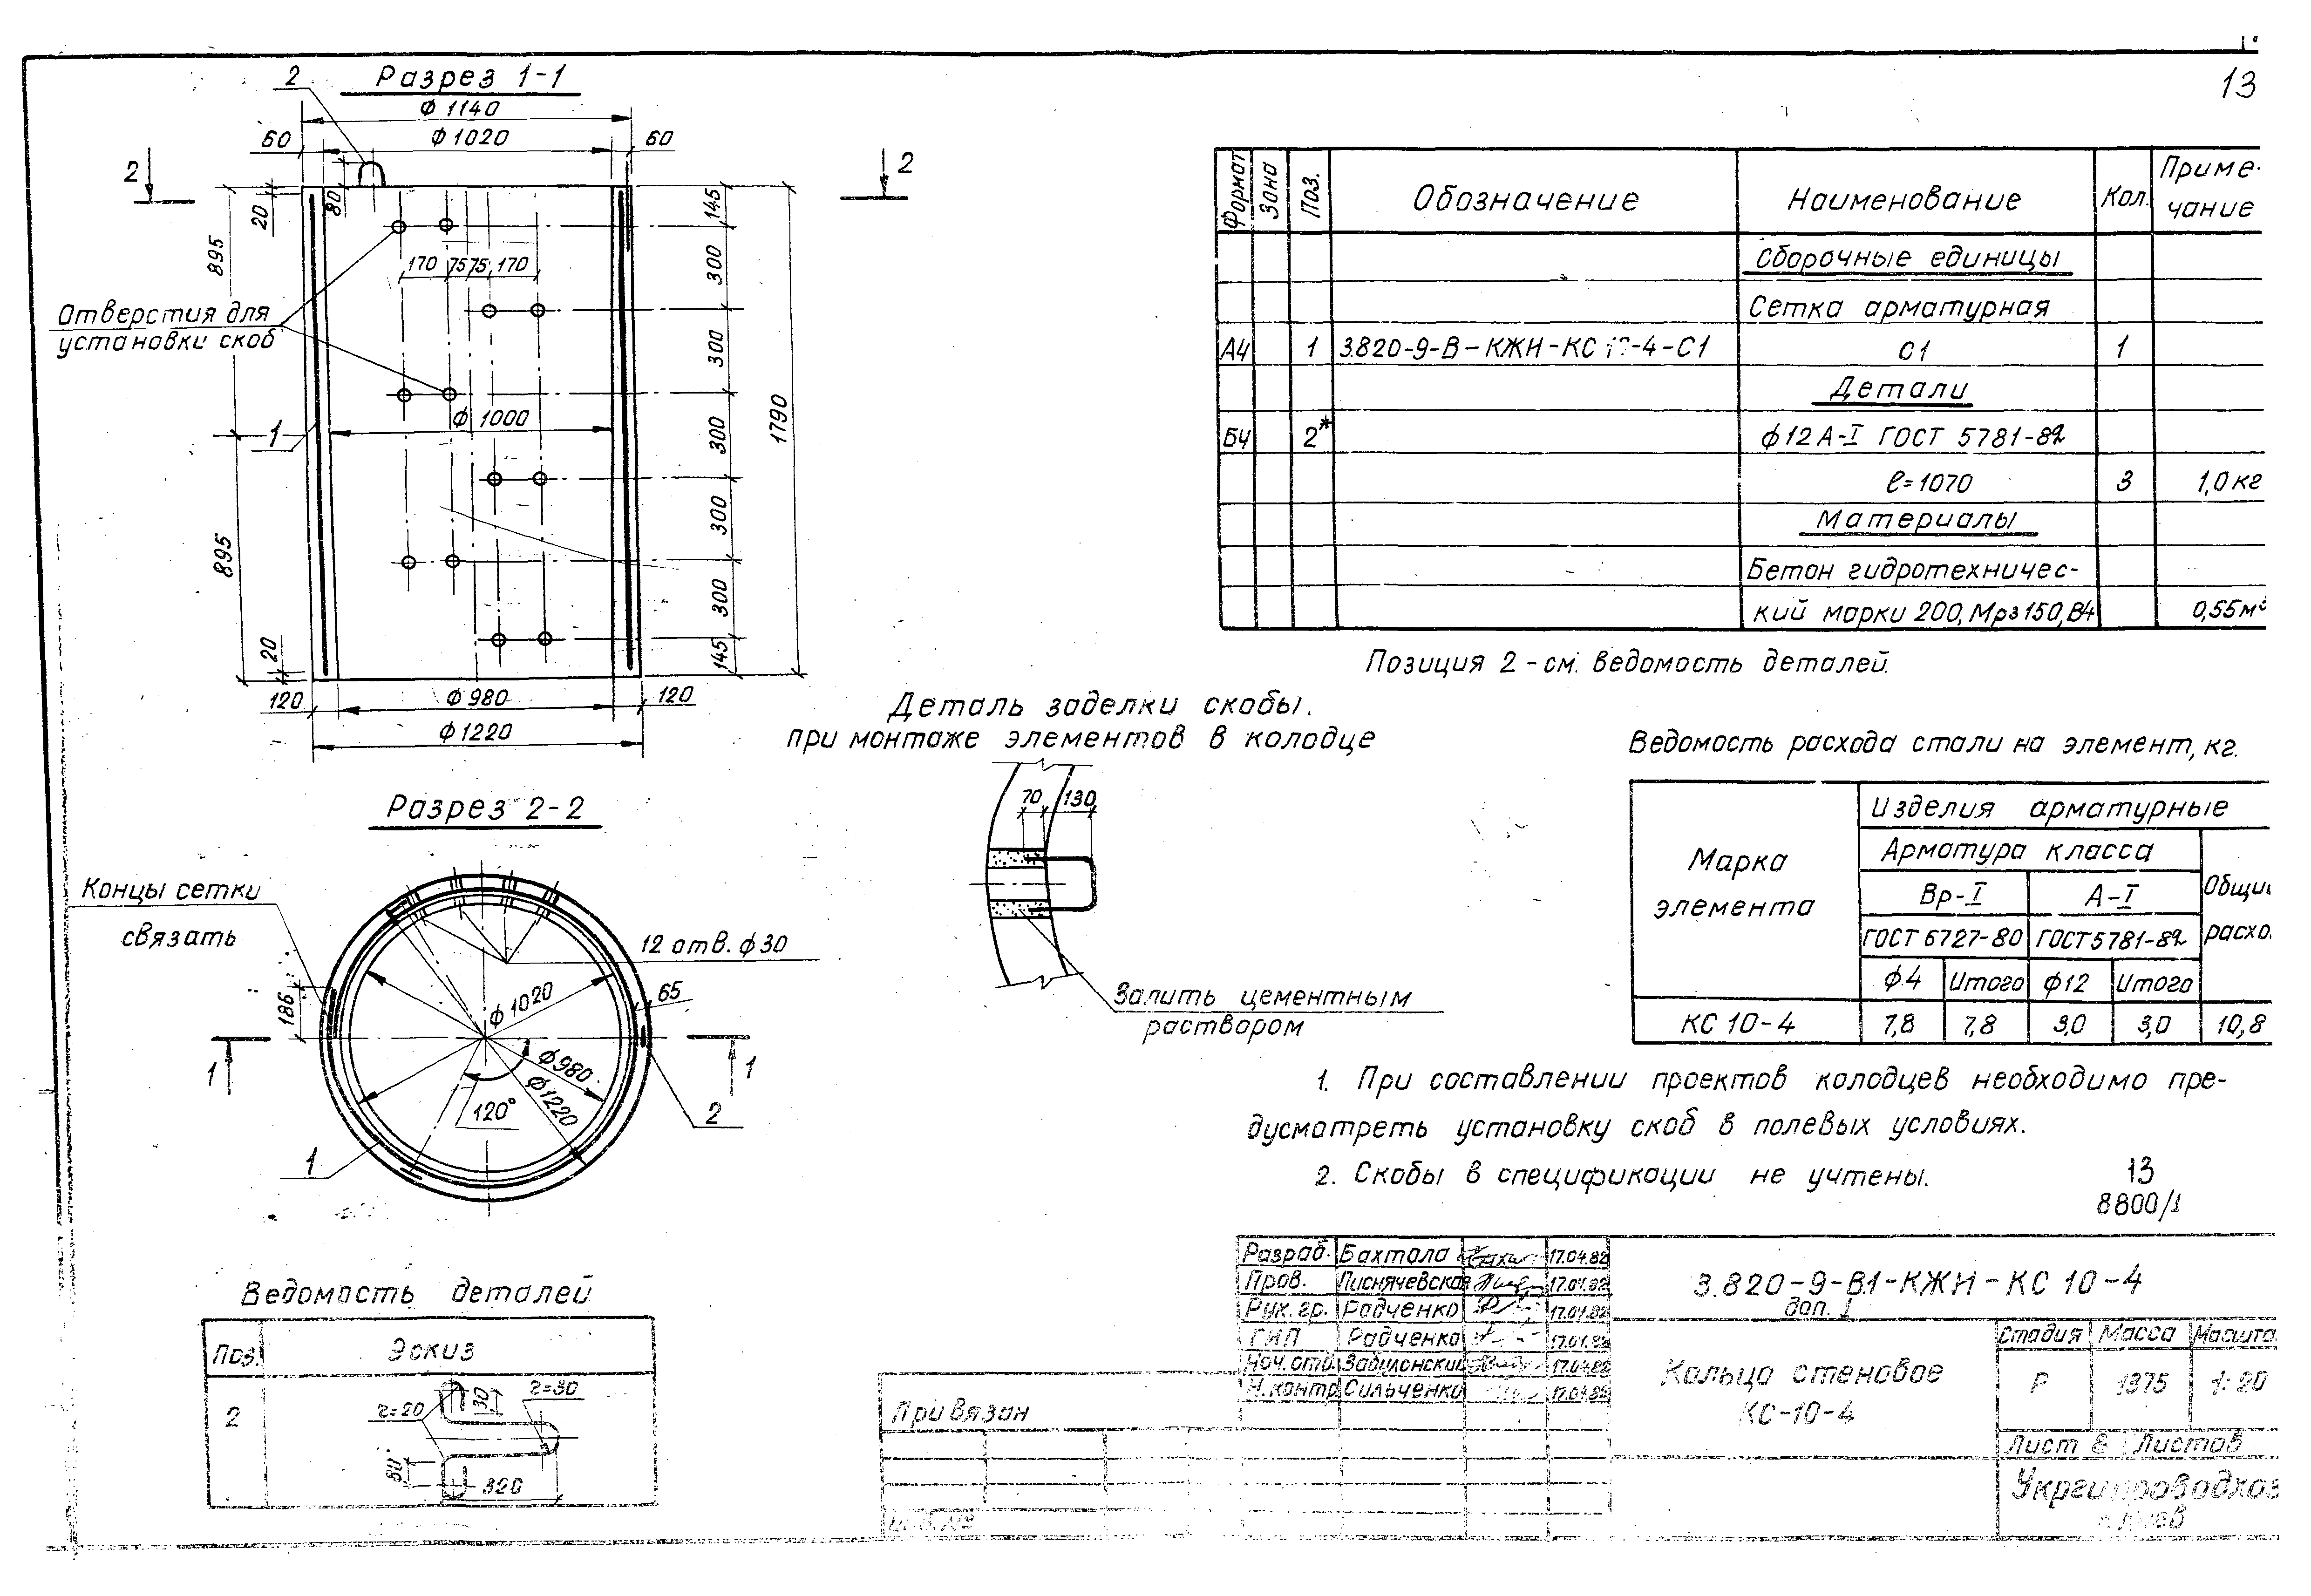 13
Разрез 1-1
2
ф 1140
60
ф 1020
60
2
2
20
80
145
895
170
75
75
170
300
Отверстия для
установки скоб
300
1
ф 1000
300
1790
300
895
300
20
145
120
ф 980
120
ф 1220
Формат
Зона
Поз.
Обозначение
Наименование
Кол.
Приме-
чание
Сборочные единицы
Сетка арматурная
А4
1
С1
1
Детали
Б4
2*
ф12А-I ГОСТ 5781-82
ℓ=1070
3
1,0 кг
Материалы
Бетон гидротехничес-
кий марки 200, Мрз150, В4
0,55м³
Позиция 2 - см. ведомость деталей.
Деталь заделки скобы.
при монтаже элементов в колодце
70
130
Залить цементным
раствором
Ведомость расхода стали на элемент, кг.
Марка
элемента
Изделия арматурные
Арматура класса
Вр-I
А-I
ГОСТ 6727-80
ГОСТ 5781-82
ф4
Итого
ф12
Итого
КС 10-4
7,8
7,8
3,0
3,0
10,8
Разрез 2-2
Концы сетки
связать
12 отв. ф30
186
ф1020
65
1
1
ф980
ф1220
120°
2
1
1. При составлении проектов колодцев необходимо пре-
дусматреть установку скоб в полевых условиях.
2. Скобы в спецификации не учтены.
13
8800/1
Ведомость деталей
Поз.
Эскиз
2
r=20
r=30
320
Привязан
Разраб.
Бахтала
17.04.82
Пров.
Писнячевская
17.04.82
Рук. гр.
Радченко
17.04.82
ГИП
Радченко
17.04.82
Нач. отд.
Забулонский
17.04.82
Н. контр
Сильченко
17.04.82
3.820-9-В.1-КЖИ-КС 10-4
доп. 1
Кольцо стеновое
КС-10-4
Стадия
Масса
Р
1375
1:20
Лист 8
Листов